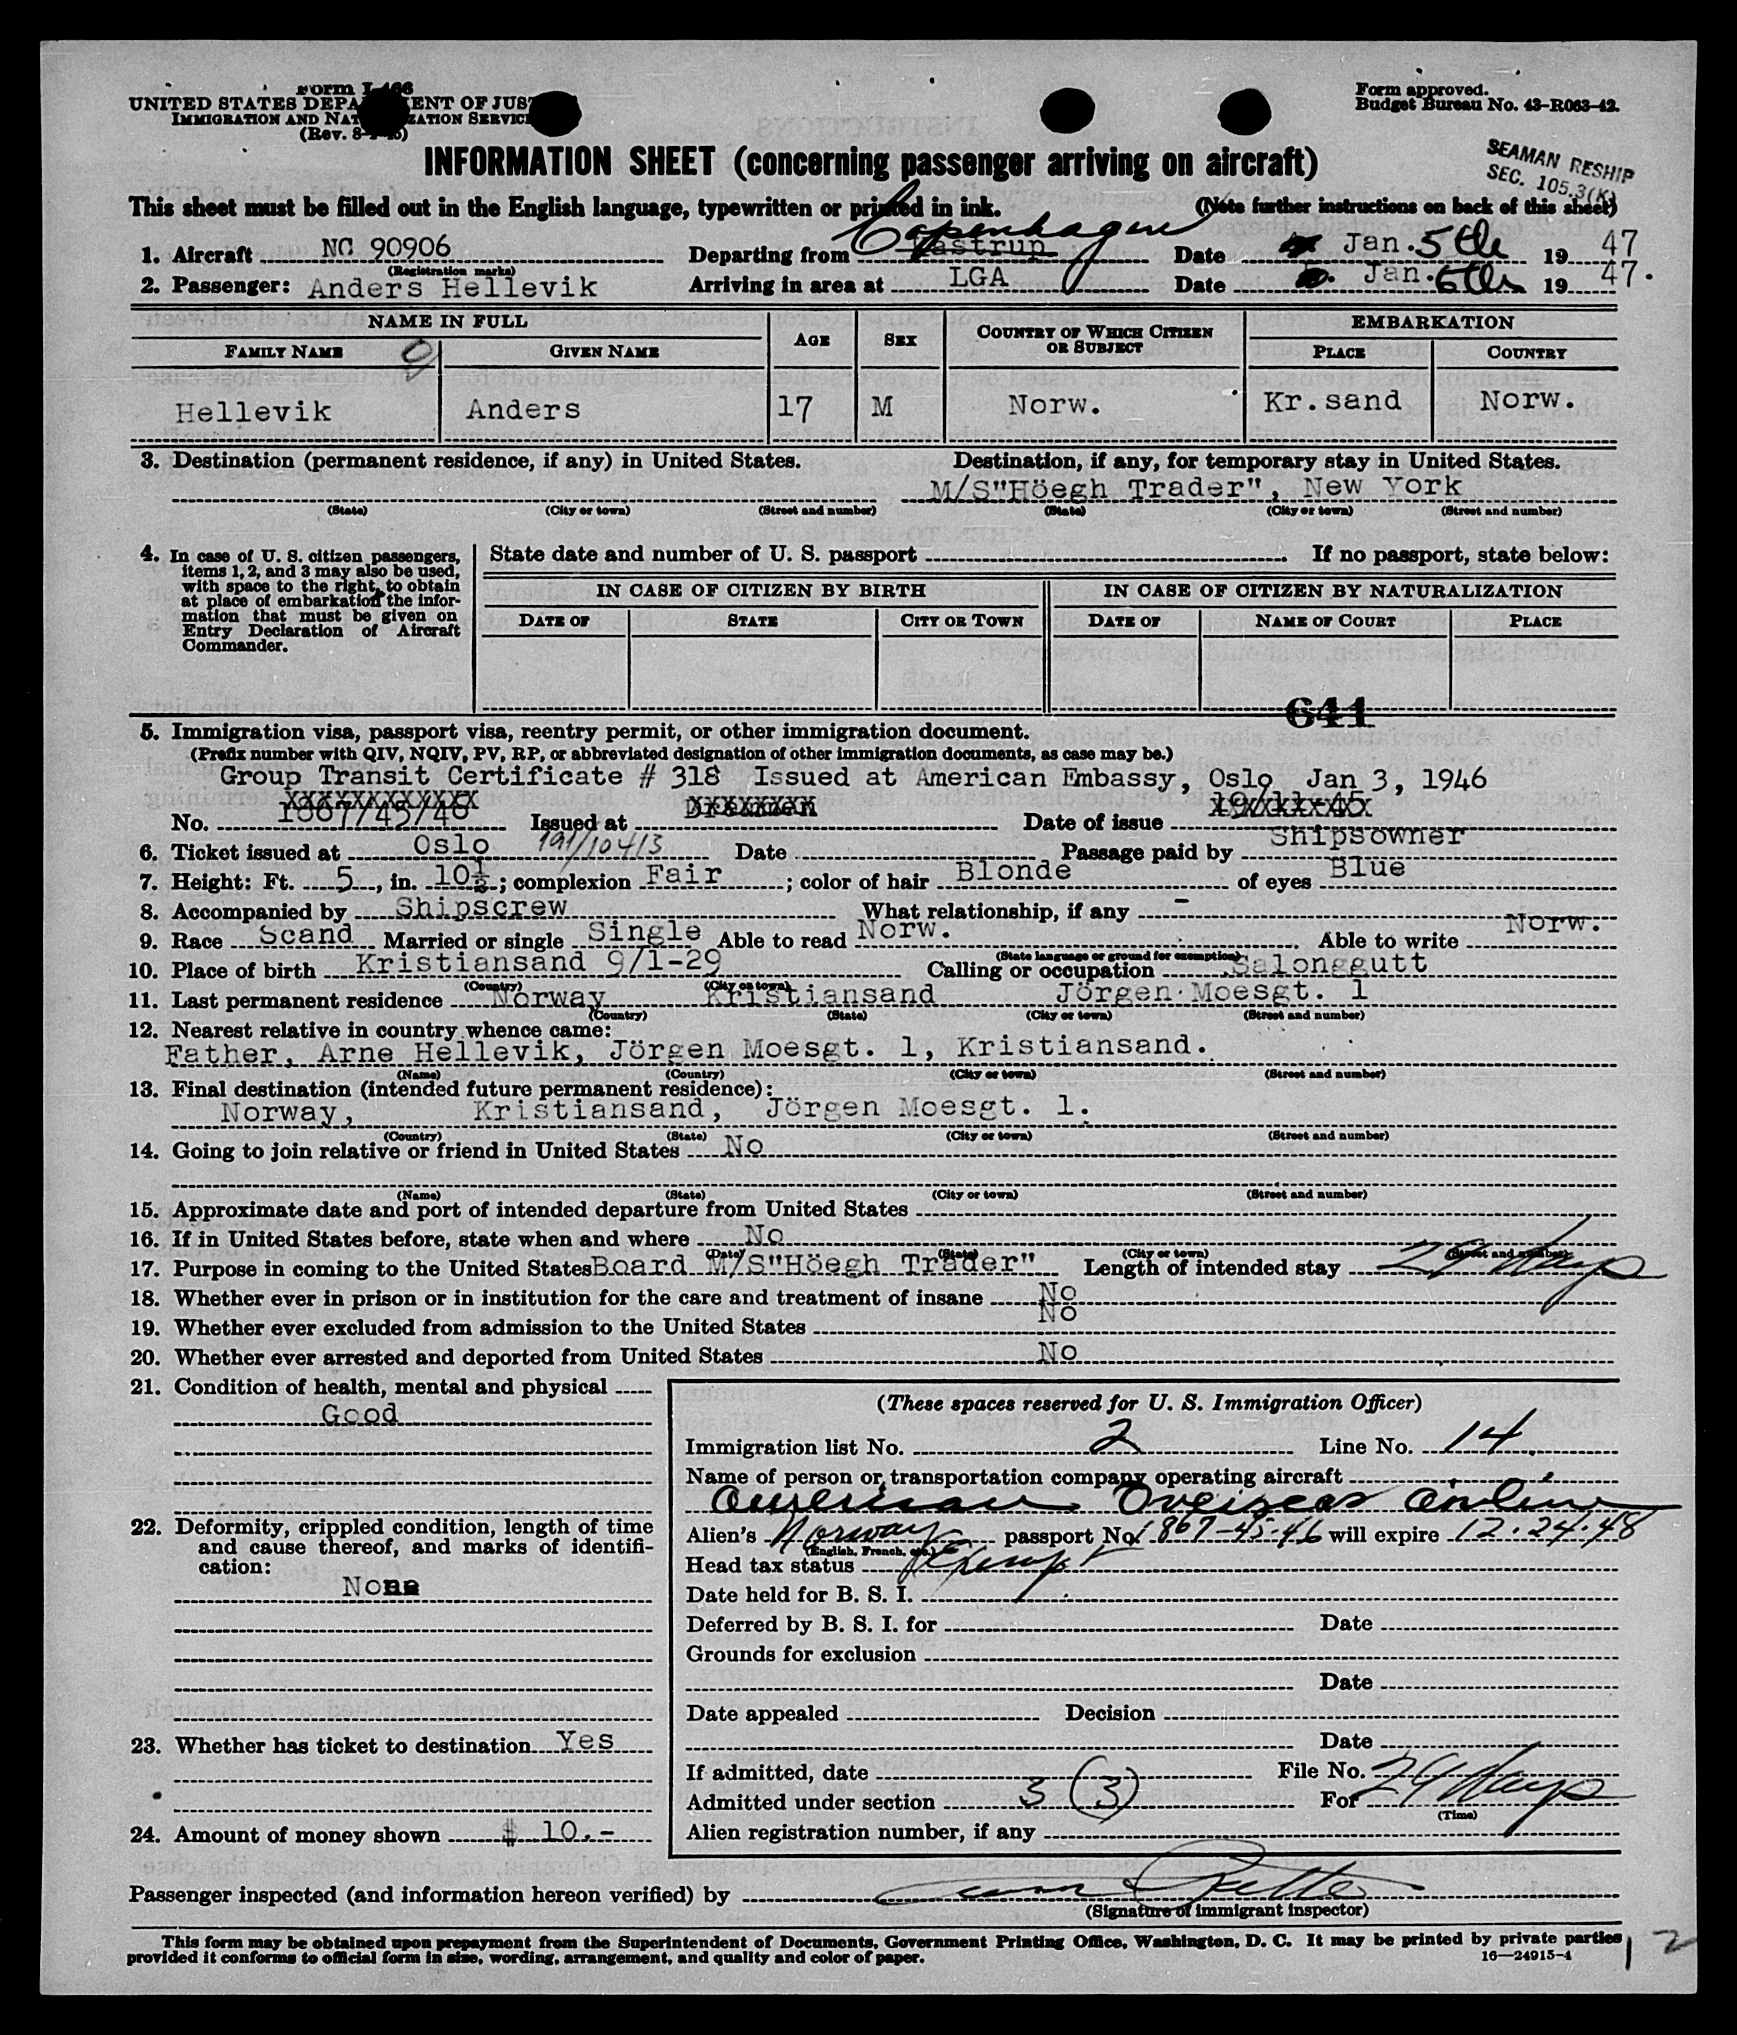 Form I-466
UNITED STATES DEPARTMENT OF JUSTICE
IMMIGRATION AND NATURALIZATION SERVICE
(Rev. 8-1-45)
Form approved.
Budget Bureau No. 43-R063-42.
INFORMATION SHEET (concerning passenger arriving on aircraft)
SEAMAN RESHIP
SEC. 105.3(K)
This sheet must be filled out in the English language, typewritten or printed in ink. (Note further instructions on back of this sheet)
Copenhagen
1. Aircraft NC 90906 Departing from Kastrup Date Jan. 5th 19 47
(Registration marks)
2. Passenger: Anders Hellevik Arriving in area at LGA Date Jan. 6th 19 47.
NAME IN FULL AGE SEX COUNTRY OF WHICH CITIZEN OR SUBJECT EMBARKATION
FAMILY NAME GIVEN NAME PLACE COUNTRY
Hellevik Anders 17 M Norw. Kr.sand Norw.
3. Destination (permanent residence, if any) in United States. Destination, if any, for temporary stay in United States.
M/S"Höegh Trader", New York
(State) (City or town) (Street and number) (State) (City or town) (Street and number)
4. In case of U. S. citizen passengers, items 1, 2, and 3 may also be used, with space to the right, to obtain at place of embarkation the information that must be given on Entry Declaration of Aircraft Commander.
State date and number of U. S. passport If no passport, state below:
IN CASE OF CITIZEN BY BIRTH IN CASE OF CITIZEN BY NATURALIZATION
DATE OF STATE CITY OR TOWN DATE OF NAME OF COURT PLACE
641
5. Immigration visa, passport visa, reentry permit, or other immigration document.
(Prefix number with QIV, NQIV, PV, RP, or abbreviated designation of other immigration documents, as case may be.)
Group Transit Certificate # 318 Issued at American Embassy, Oslo Jan 3, 1946
XXXXXXXXXXXX XXXXXXXX XXXXXXXXXX
No. 1867/45/46 Issued at Drammen Date of issue 19/11-45
6. Ticket issued at Oslo 191/10413 Date Passage paid by Shipsowner
7. Height: Ft. 5, in. 10½; complexion Fair; color of hair Blonde of eyes Blue
8. Accompanied by Shipscrew What relationship, if any -
9. Race Scand Married or single Single Able to read Norw. Able to write Norw.
(State language or ground for exemption)
10. Place of birth Kristiansand 9/1-29 Calling or occupation Salonggutt
(Country) (City or town)
11. Last permanent residence Norway Kristiansand Jörgen Moesgt. 1
(Country) (State) (City or town) (Street and number)
12. Nearest relative in country whence came:
Father, Arne Hellevik, Jörgen Moesgt. 1, Kristiansand.
(Name) (Country) (City or town) (Street and number)
13. Final destination (intended future permanent residence):
Norway, Kristiansand, Jörgen Moesgt. 1.
(Country) (State) (City or town) (Street and number)
14. Going to join relative or friend in United States No
(Name) (State) (City or town) (Street and number)
15. Approximate date and port of intended departure from United States
16. If in United States before, state when and where No
(Date) (State) (City or town) (Street and number)
17. Purpose in coming to the United States Board M/S"Höegh Trader" Length of intended stay 29 days
18. Whether ever in prison or in institution for the care and treatment of insane No
19. Whether ever excluded from admission to the United States No
20. Whether ever arrested and deported from United States No
21. Condition of health, mental and physical
Good
22. Deformity, crippled condition, length of time and cause thereof, and marks of identification:
None
23. Whether has ticket to destination Yes
24. Amount of money shown $ 10.-
(These spaces reserved for U. S. Immigration Officer)
Immigration list No. 2 Line No. 14
Name of person or transportation company operating aircraft
American Overseas Airlines
Alien's Norway passport No. 1867-45-46 will expire 12.24.48
(English, French, etc.)
Head tax status Exempt
Date held for B. S. I.
Deferred by B. S. I. for Date
Grounds for exclusion
Date
Date appealed Decision
Date
If admitted, date File No.
Admitted under section 3 (3) For 29 days
(Time)
Alien registration number, if any
Passenger inspected (and information hereon verified) by
(Signature of immigrant inspector)
This form may be obtained upon prepayment from the Superintendent of Documents, Government Printing Office, Washington, D. C. It may be printed by private parties
provided it conforms to official form in size, wording, arrangement, and quality and color of paper.
16—24915-4
1 2